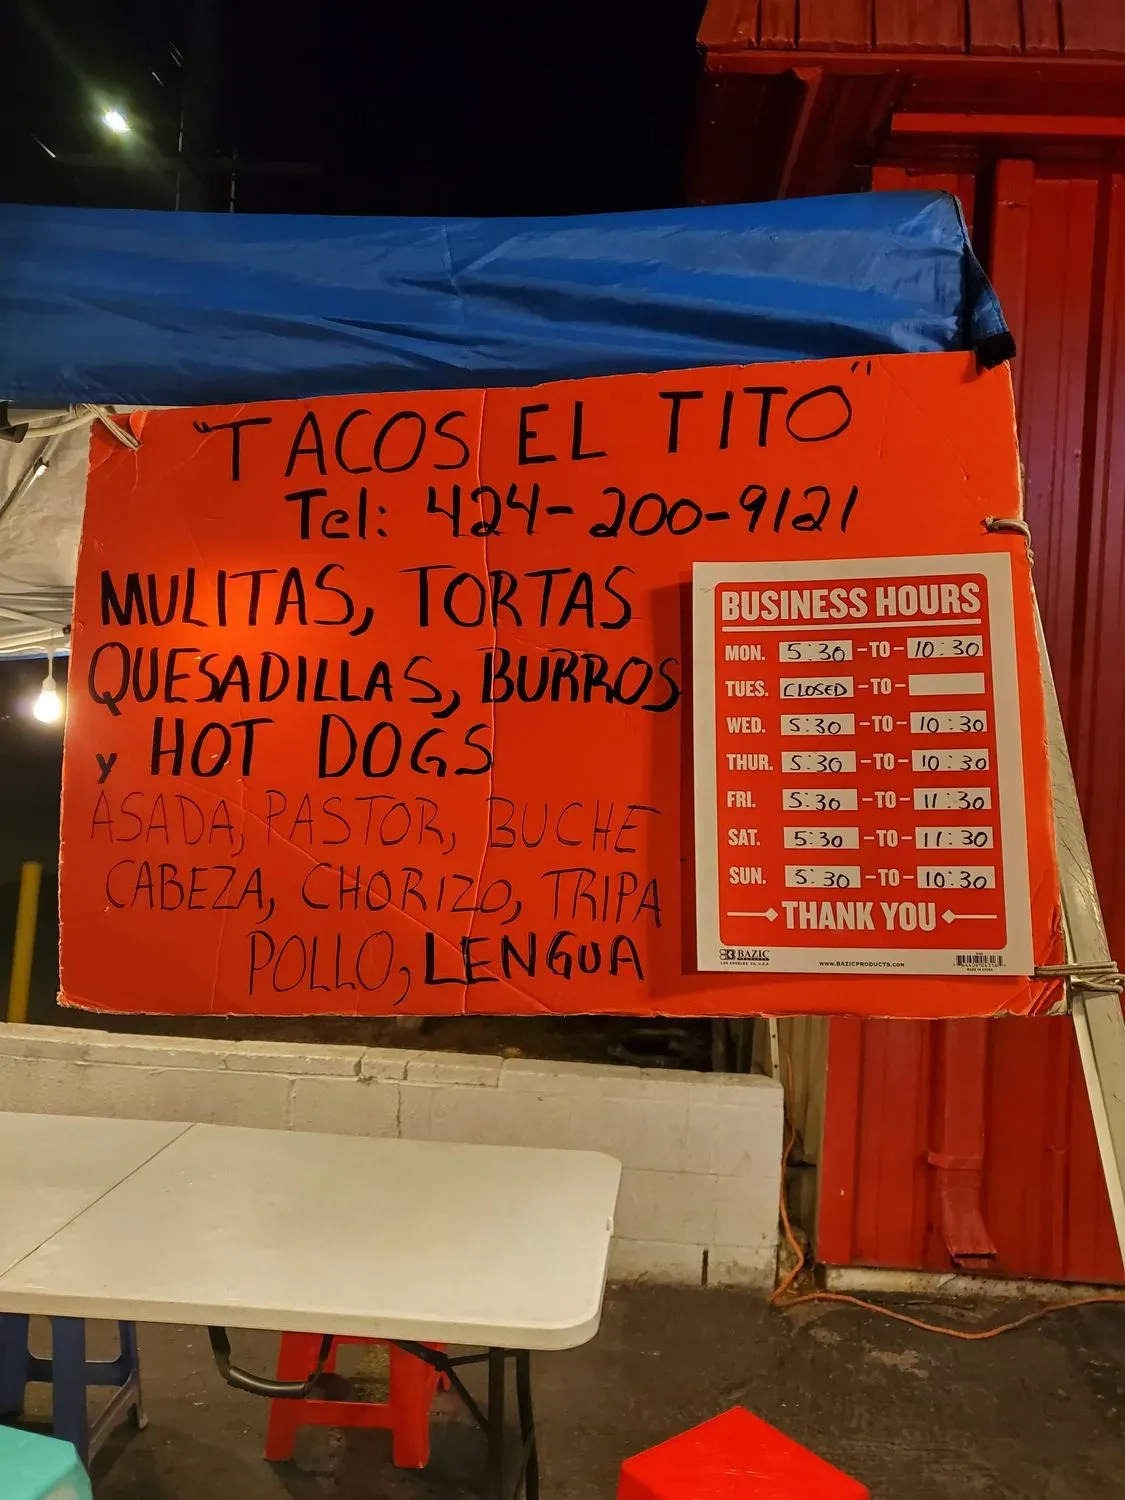 "TACOS EL TITO"
Tel: 424-200-9121
MULITAS, TORTAS
QUESADILLAS, BURROS
y HOT DOGS
ASADA, PASTOR, BUCHE
CABEZA, CHORIZO, TRIPA
POLLO, LENGUA
BUSINESS HOURS
MON. 5:30 -TO- 10:30
TUES. CLOSED -TO-
WED. 5:30 -TO- 10:30
THUR. 5:30 -TO- 10:30
FRI. 5:30 -TO- 11:30
SAT. 5:30 -TO- 11:30
SUN. 5:30 -TO- 10:30
THANK YOU
BAZIC
WWW.BAZICPRODUCTS.COM
MADE IN CHINA